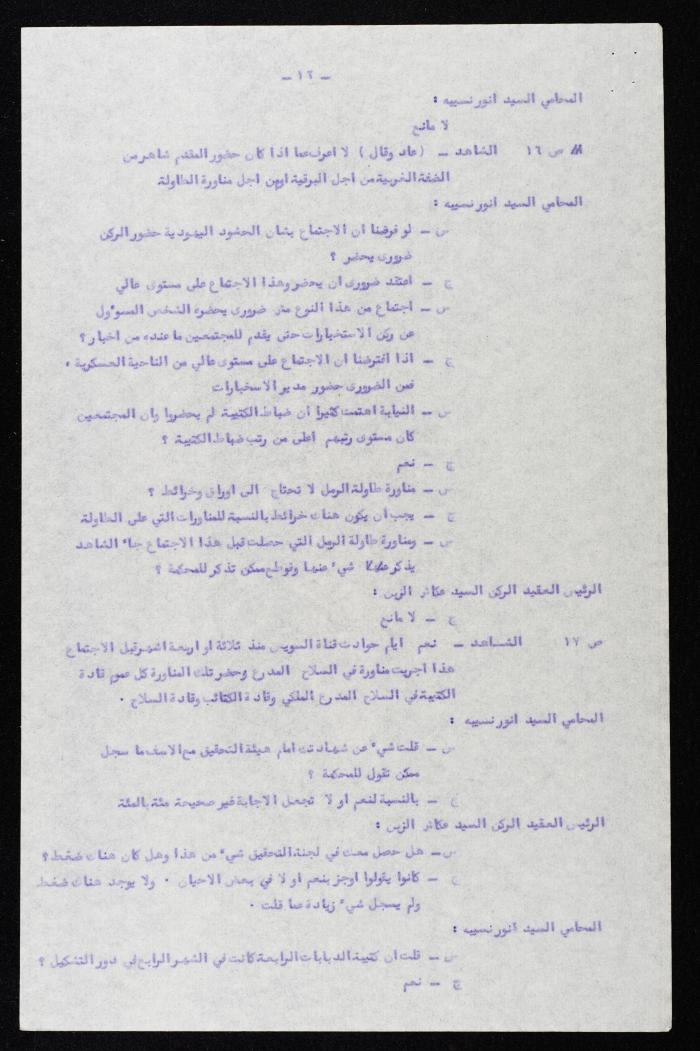 ـ ١٢ ـ
المحامي السيد انور نسيبه :
لا مانع
ص ١٦ الشاهد ـ (عاد وقال) لا اعرف عما اذا كان حضور المقدم شاهر من
الضفة الغربية من اجل البرقية او من اجل مناورة الطاولة
المحامي السيد انور نسيبه :
س ـ لو فرضنا ان الاجتماع بشان الحشود اليهودية حضور الركن
ضرورى يحضر ؟
ج ـ اعتقد ضرورى ان يحضر وهذا الاجتماع على مستوى عالي
س ـ اجتماع من هذا النوع مش ضرورى يحضره الشخص المسوءول
عن ركن الاستخبارات حتى يقدم للمجتمعين ما عنده من اخبار ؟
ج ـ اذا افترضنا ان الاجتماع على مستوى عالي من الناحية العسكرية ،
فمن الضرورى حضور مدير الاسخبارات
س ـ النيابة اهتمت كثيرا ان ضباط الكتيبة لم يحضروا وان المجتمعين
كان مستوى رتبهم اعلى من رتب ضباط الكتيبة ؟
ج ـ نعم
س ـ مناورة طاولة الرمل لا تحتاج الى اوراق وخرائط ؟
ج ـ يجب ان يكون هناك خرائط بالنسبة للمناورات التي على الطاولة
س ـ ومناورة طاولة الرمل التي حصلت قبل هذا الاجتماع جاء الشاهد
يذكر شيء عنها وقوطع ممكن تذكر للمحكمة ؟
الرئيس العقيد الركن السيد عكاش الزبن :
ج ـ لا مانع
ص ١٧ الشاهد ـ نعم ايام حوادث قناة السويس منذ ثلاثة او اربعة اشهر قبل الاجتماع
هذا اجريت مناورة في السلاح المدرع وحضر تلك المناورة كل عموم قادة
الكتيبة في السلاح المدرع الملكي وقادة الكتائب وقادة السلاح .
المحامي السيد انور نسيبه :
س ـ قلت شيء عن شهادتك امام هيئة التحقيق مع الاسف ما سجل
ممكن تقول للمحكمة ؟
ج ـ بالنسبة لنعم او لا تجعل الاجابة غير صحيحة مئة بالمئة
الرئيس العقيد الركن السيد عكاش الزبن :
س ـ هل حصل معك في لجنة التحقيق شيء من هذا وهل كان هناك ضغط ؟
ج ـ كانوا يقولوا اوجز بنعم او لا في بعض الاحيان . ولا يوجد هناك ضغط
ولم يسجل شيء زيادة عما قلت .
المحامي السيد انور نسيبه :
س ـ قلت ان كتيبة الدبابات الرابعة كانت في الشهر الرابع في دور التشكيل ؟
ج ـ نعم